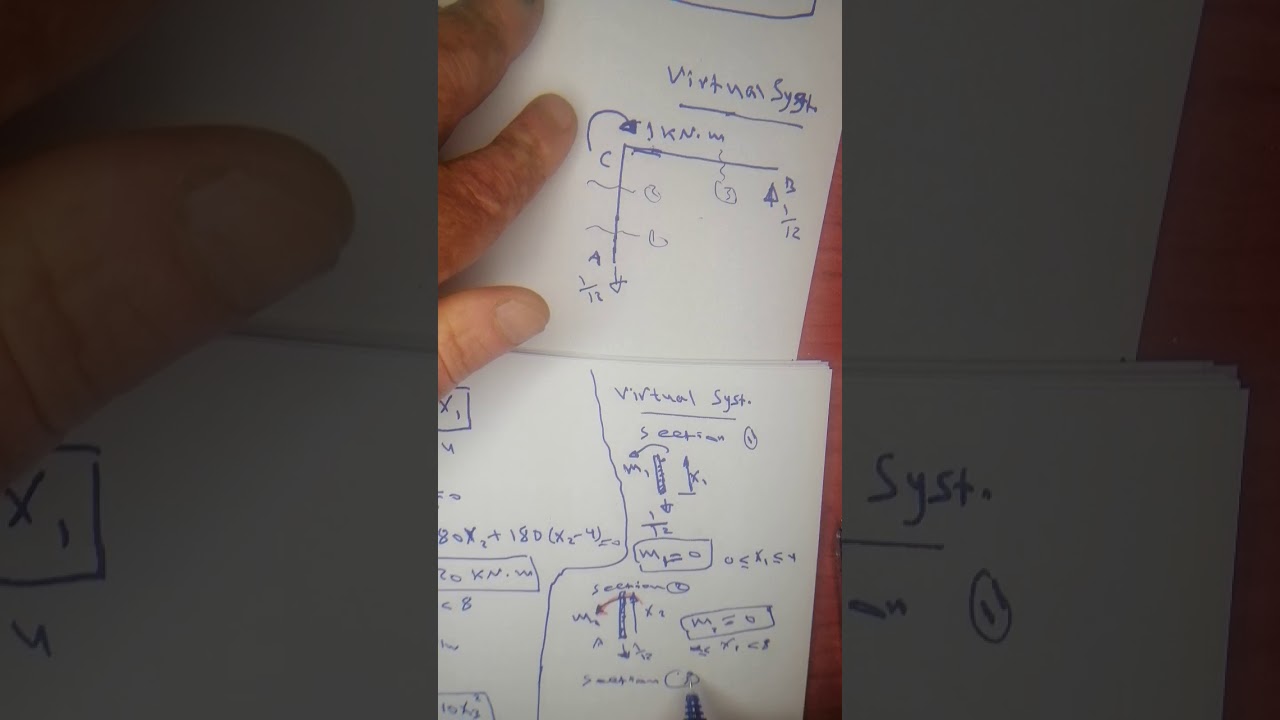 Virtual Syst.
1 kN.m
C
②
③
B
1/12
①
A
1/12
x₁
4
=0
80x₂ + 180(x₂-4)=0
20 KN.m
< 8
Virtual Syst.
Section ①
m₁
x₁
1/12
m₁=0 0 ≤ x₁ ≤ 4
Section ②
x₂
m₂ = 0
A
1/12
Section